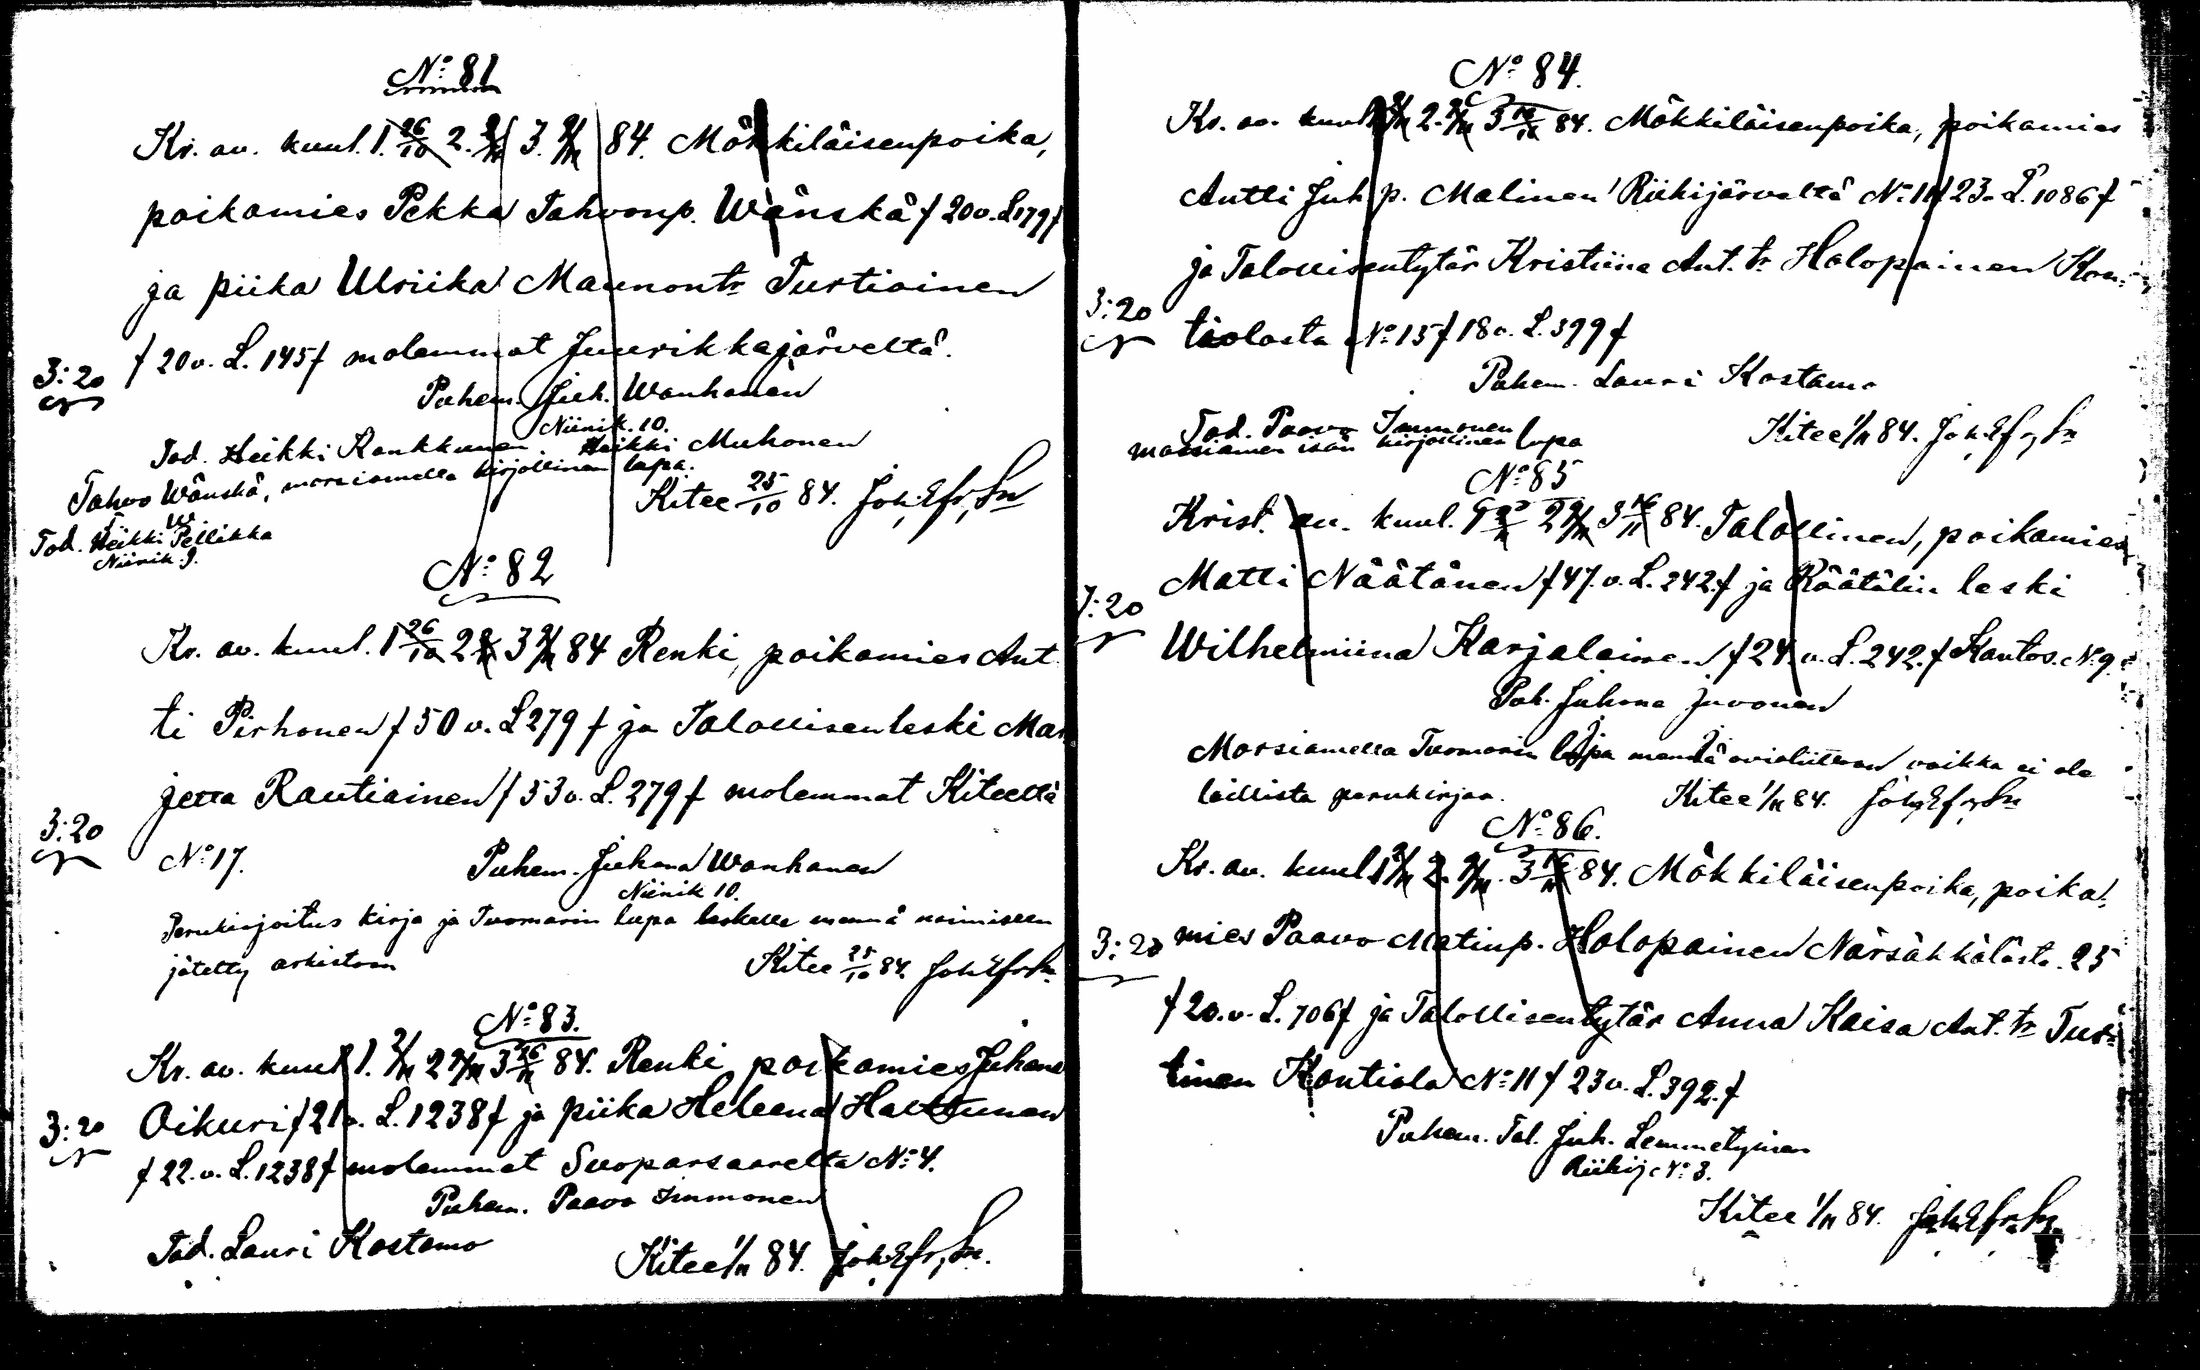 No: 81
Kr. av. kuul. 1. 26/10 2. 2/11 3. 9/11 84. Mökkiläisenpoika,
poikamies Pekka Tahvonp. Wänskä f 20 v. L 179 f
ja piika Ulriika Maunontr Turtiainen
f 20 v. L. 145 f molemmat Juurikkajärveltä.
3:20
Puhem. Juh. Wanhanen
Niinik. 10.
Tod. Heikki Ronkkunen Heikki Muhonen
Tahvo Wänskä, morsiamella kirjallinen lupa.
Kitee 25/10 84. Joh. Efr. Sn
Tod. Heikki Pellikka
Niinik. 9.
No: 82
Kr. av. kuul. 1 26/10 2 2/11 3 9/11 84 Renki, poikamies Ant
ti Pirhonen f 50 v. L 279 f ja Talollisen leski Mar
jetta Rautiainen f 53 v. L. 279 f molemmat Kiteeltä
3:20
No: 17. Puhem. Juhana Wanhanen
Niinik 10.
Perukirjoitus kirja ja Tuomarin lupa leskelle mennä naimiseen
jätetty arkistoon Kitee 25/10 84. Joh. Efr. Sn.
No: 83.
Kr. av. kuul 1. 2/11 2 9/11 3 16/11 84. Renki poikamies Juhana
3:20
Oikuri f 21 v. L. 1238 f ja piika Heleena Hattunen
f 22. v. L. 1238 f molemmat Suoparsaarelta No: 4.
Puhem. Paavo Immonen
Tod. Lauri Kostamo Kitee 1/11 84. Joh. Efr. Sn.
No: 84.
Kr. av. kuul 1 2/11 2. 9/11 3 16/11 84. Mökkiläisenpoika, poikamies
Antti Juh p. Malinen Riihijärveltä No: 11 f 23 v. L. 1086 f
ja Talollisentytär Kristiina Ant. tr Holopainen Kon-
3:20
tiolasta No: 15 f 18 v. L. 399 f
Puhem. Lauri Kostamo
Tod. Paavo Immonen
morsiamen isän kirjallinen lupa
Kitee 1/11 84. Joh. Efr. Sn
No: 85
Krist. au. kuul. 1 2/11 2 9/11 3 16/11 84. Talollinen, poikamies
Matti Näätänen f 47. v. L. 242. f ja Räätälin leski
3:20
Wilhelmiina Karjalainen f 24. v. L. 242. f Kantos. No. 9.
Puh. Juhana Juvonen
Morsiamella Tuomarin lupa mennä avioliittoon vaikka ei ole
laillista perukirjaa. Kitee 1/11 84. Joh. Efr. Sn
No: 86.
Kr. au. kuul. 1 2/11 2. 9/11. 3 16/11 84. Mökkiläisenpoika, poika-
3:20
mies Paavo Matinp. Holopainen Närsäkkälästä. 25
f 20. v. L. 706 f ja Talollisentytär Anna Kaisa Ant. tr Tur-
tinen Kontiola No: 11 f 23 v. L. 392. f
Puhem. Tal. Juh. Lemmetyinen
Riihij. No: 3.
Kitee 1/11 84. Joh. Efr. Sn.